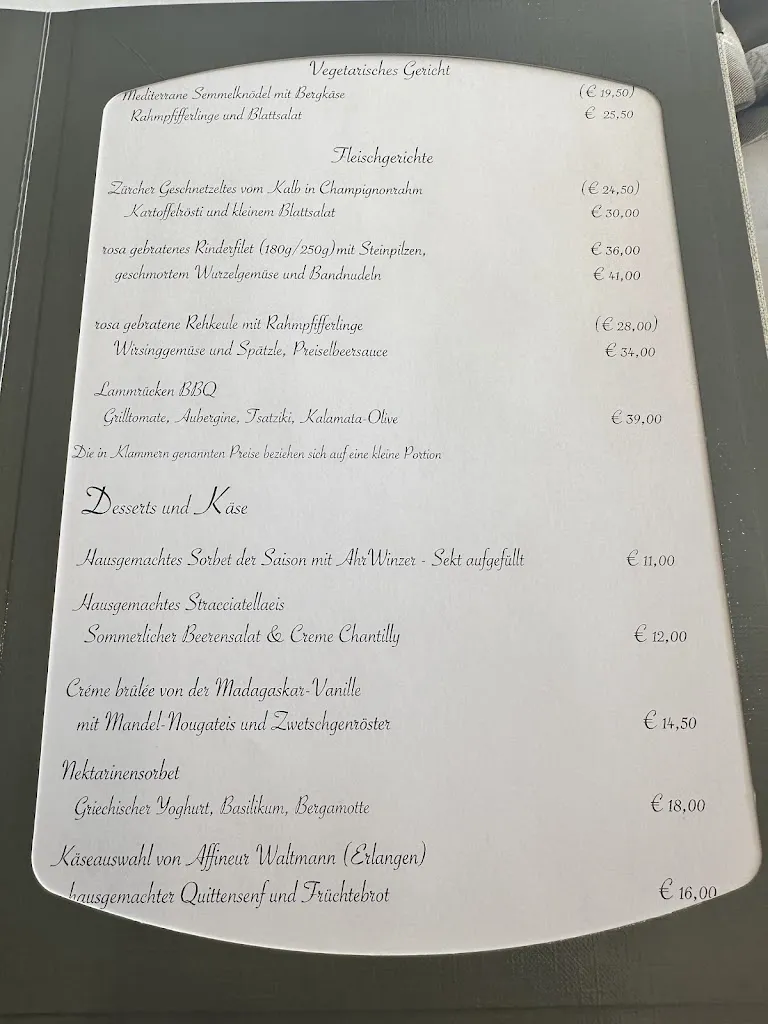 Vegetarisches Gericht
Mediterrane Semmelknödel mit Bergkäse (€ 19,50)
Rahmpfifferlinge und Blattsalat € 25,50
Fleischgerichte
Zürcher Geschnetzeltes vom Kalb in Champignonrahm (€ 24,50)
Kartoffelrösti und kleinem Blattsalat € 30,00
rosa gebratenes Rinderfilet (180g/250g) mit Steinpilzen, € 36,00
geschmortem Wurzelgemüse und Bandnudeln € 41,00
rosa gebratene Rehkeule mit Rahmpfifferlinge (€ 28,00)
Wirsinggemüse und Spätzle, Preiselbeersauce € 34,00
Lammrücken BBQ
Grilltomate, Aubergine, Tsatziki, Kalamata-Olive € 39,00
Die in Klammern genannten Preise beziehen sich auf eine kleine Portion
Desserts und Käse
Hausgemachtes Sorbet der Saison mit Ahr Winzer - Sekt aufgefüllt € 11,00
Hausgemachtes Stracciatellaeis
Sommerlicher Beerensalat & Creme Chantilly € 12,00
Créme brûlée von der Madagaskar-Vanille
mit Mandel-Nougateis und Zwetschgenröster € 14,50
Nektarinensorbet
Griechischer Yoghurt, Basilikum, Bergamotte € 18,00
Käseauswahl von Affineur Waltmann (Erlangen)
hausgemachter Quittensenf und Früchtebrot € 16,00